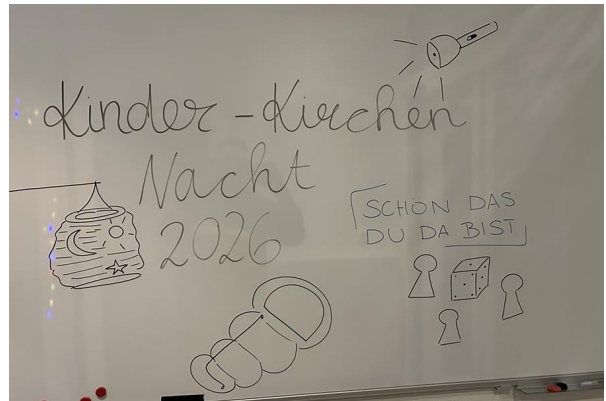 Kinder - Kirchen
Nacht
2026
SCHON DAS
DU DA BIST